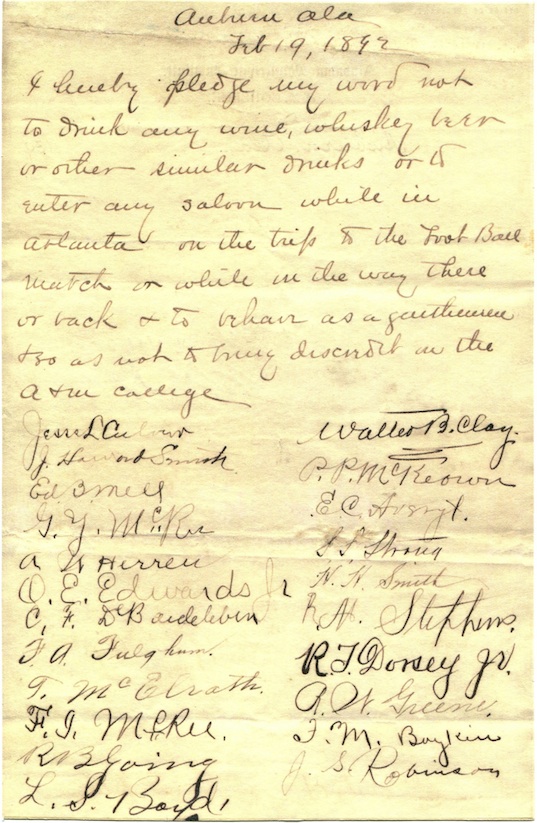 Auburn Ala
Feb 19, 1892
I hereby pledge my word not
to drink any wine, whiskey beer
or other similar drinks or to
enter any saloon while in
Atlanta on the trip to the Foot Ball
match or while on the way there
or back & to behave as a gentlemen
& so as not to bring discredit on the
A & M College
Jesse L Culver
Walter B. Clay.
J. Haword Smith
P. P. McKeown
Ed
E. C. Averyt.
G. Y. McRee
S. S. Strong
A W Herren
H. H. Smith
O. E. Edwards Jr
Stephens.
C. F. DeBardeleben
R. T. Dorsey Jr.
F. A. Fulghum.
A. W. Greene.
T. McElrath.
T. M. Boykin
F. J. McRee.
J. S. Robinson
R B Going
L. S. Boyd.